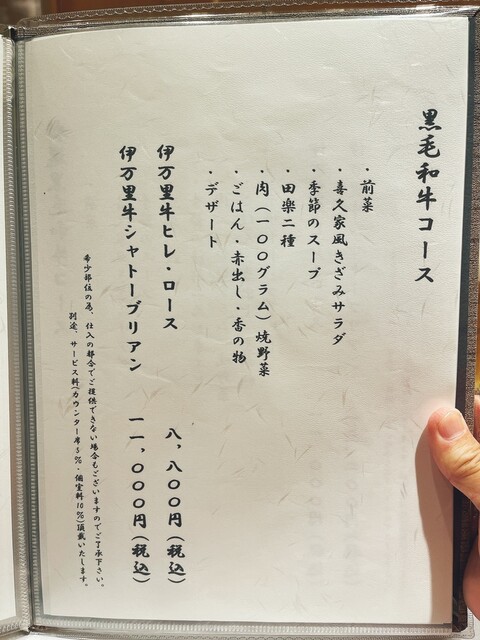 黒毛和牛コース
・前菜
・喜久家風きざみサラダ
・季節のスープ
・田楽二種
・肉（一〇〇グラム）焼野菜
・ごはん・赤出し・香の物
・デザート
伊万里牛ヒレ・ロース 八、八〇〇円（税込）
伊万里牛シャトーブリアン 一一、〇〇〇円（税込）
希少部位の為、仕入の都合でご提供できない場合もございますのでご了承下さい。
別途、サービス料（カウンター席5％・個室料10％）頂戴いたします。